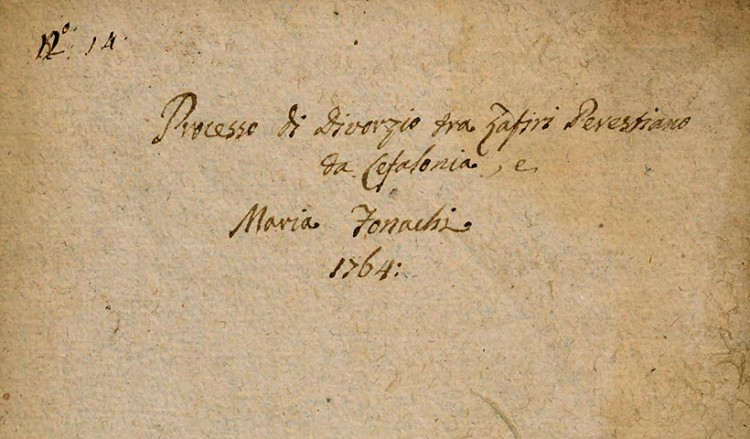 N.º 14
Processo di Divorzio tra Zafiri Perestiano
da Cefalonia, e
Maria Fonachi
1764: